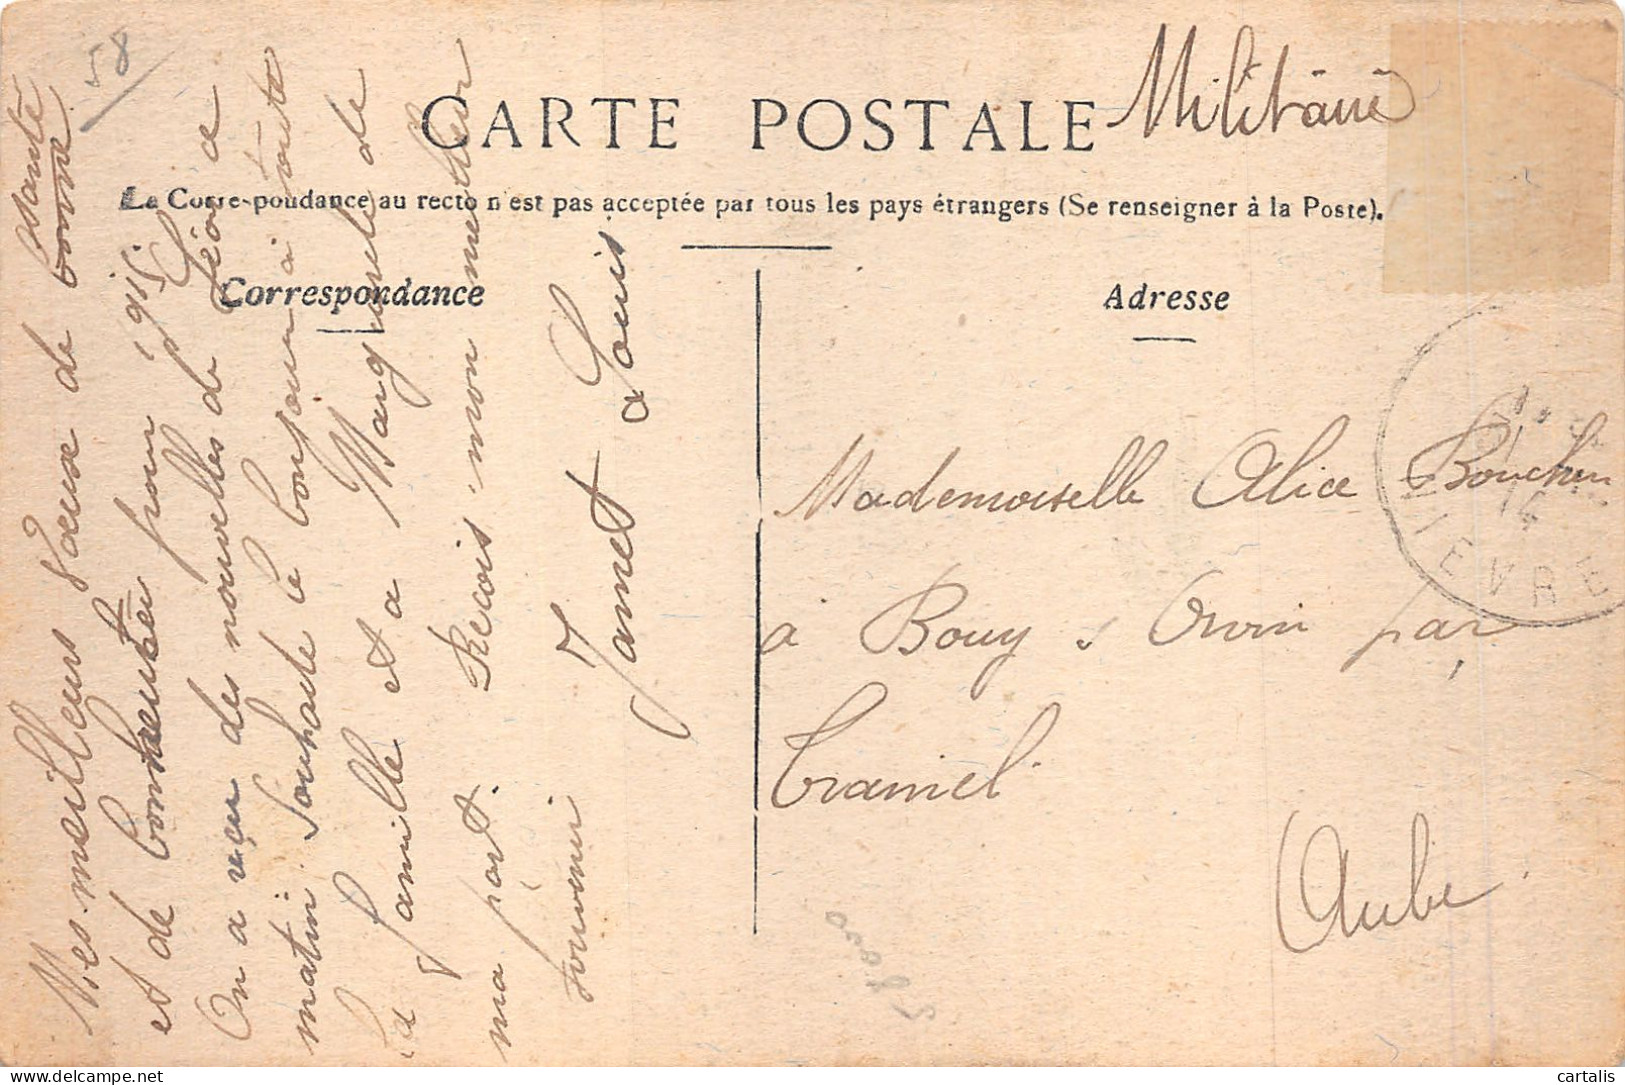 58
Militaire
CARTE POSTALE
La Corre-pondance au recto n'est pas acceptée par tous les pays étrangers (Se renseigner à la Poste).
Correspondance
Mes meilleurs vœux de bonne santé
et de bonheur pour 1915.
On a reçu des nouvelles de Léon ce
matin souhaite le bonjour à toute
la famille et a Marguerite de
ma part. Reçois mon meilleur
souvenir
Jamet Louis
Adresse
Mademoiselle Alice Bouchu
a Bouy s Orvin par
Trainel
Aube
NIEVRE
cartalis